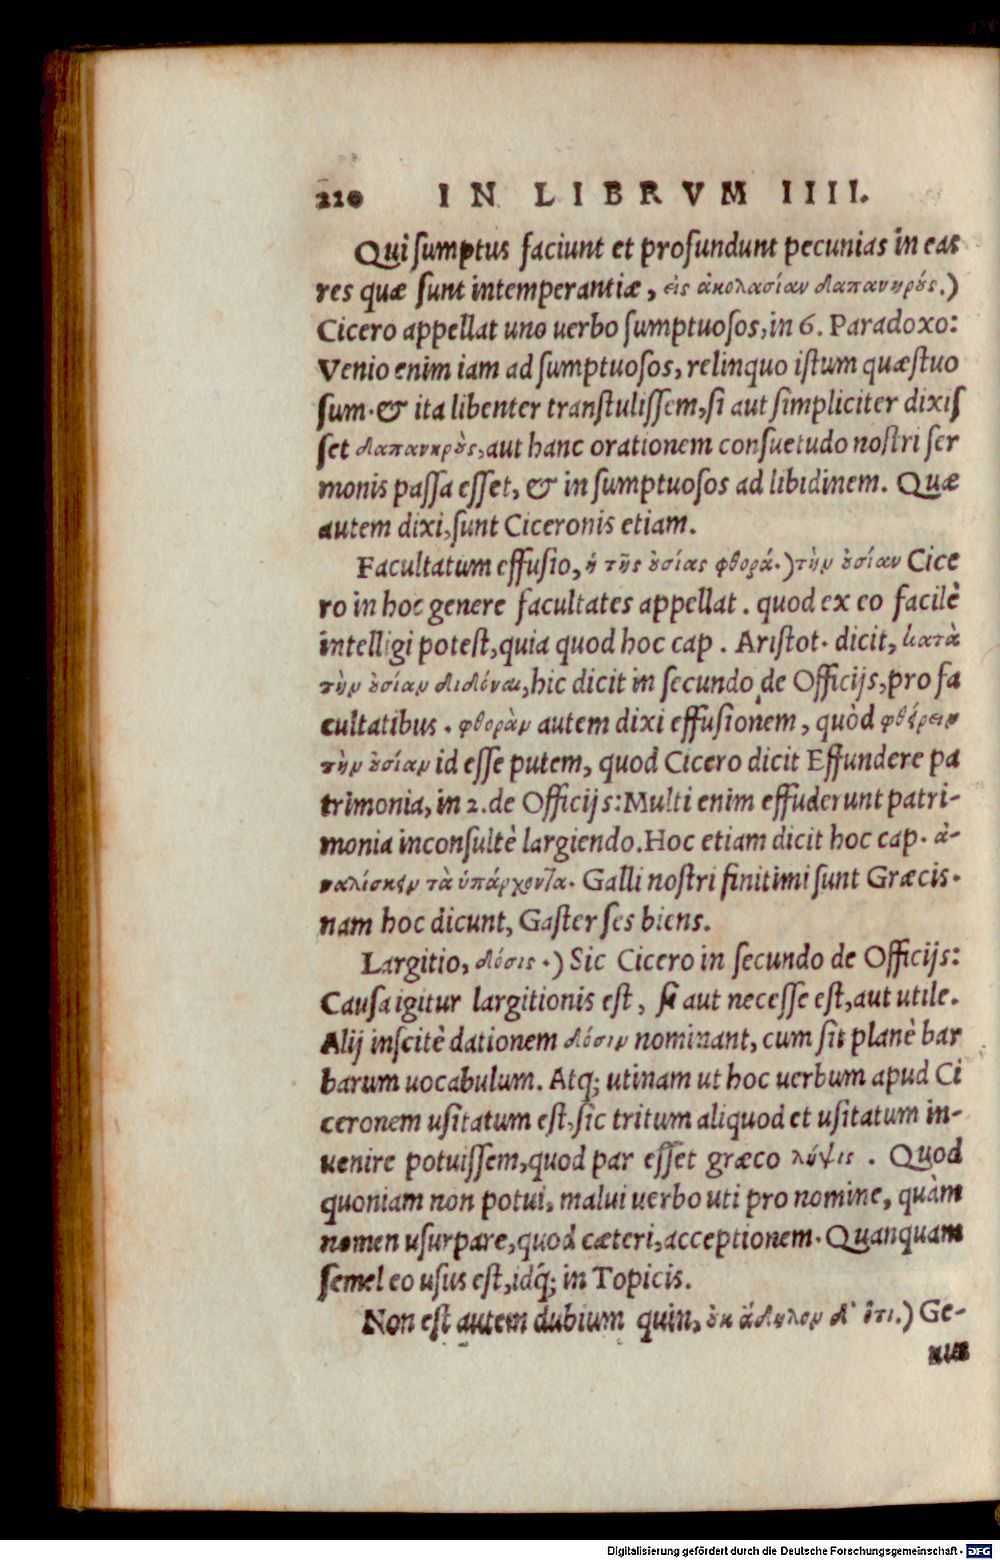 210 IN LIBRVM IIII.
Qui sumptus faciunt et profundunt pecunias in eas
res quæ sunt intemperantiæ, εἰς ἀκολασίαν δαπανηρούς.)
Cicero appellat uno uerbo sumptuosos, in 6. Paradoxo:
Venio enim iam ad sumptuosos, relinquo istum quæstuo
sum. & ita libenter transtulissem, si aut simpliciter dixis
set δαπανηρὸς, aut hanc orationem consuetudo nostri ser
monis passa esset, & in sumptuosos ad libidinem. Quæ
autem dixi, sunt Ciceronis etiam.
Facultatum effusio, ἡ τῆς οὐσίας φθορά.) τὴν οὐσίαν Cice
ro in hoc genere facultates appellat. quod ex eo facilè
intelligi potest, quia quod hoc cap. Aristot. dicit, κατὰ
τὴν οὐσίαν διδόναι, hic dicit in secundo de Officijs, pro fa
cultatibus. φθορὰν autem dixi effusionem, quòd φθείρειν
τὴν οὐσίαν id esse putem, quod Cicero dicit Effundere pa
trimonia, in 2. de Officijs: Multi enim effuderunt patri-
monia inconsultè largiendo. Hoc etiam dicit hoc cap. ἀ-
ναλίσκειν τὰ ὑπάρχοντα. Galli nostri finitimi sunt Græcis.
nam hoc dicunt, Gaster ses biens.
Largitio, δόσις.) Sic Cicero in secundo de Officijs:
Causa igitur largitionis est, si aut necesse est, aut utile.
Alij inscitè dationem δόσιν nominant, cum sit planè bar
barum uocabulum. Atq; utinam ut hoc uerbum apud Ci
ceronem usitatum est, sic tritum aliquod et usitatum in-
uenire potuissem, quod par esset græco λῆψις. Quod
quoniam non potui, malui uerbo uti pro nomine, quàm
nomen usurpare, quod cæteri, acceptionem. Quanquam
semel eo usus est, idq́; in Topicis.
Non est autem dubium quin, οὐκ ἄδηλον δ' ὅτι.) Ge-
nus
Digitalisierung gefördert durch die Deutsche Forschungsgemeinschaft - DFG